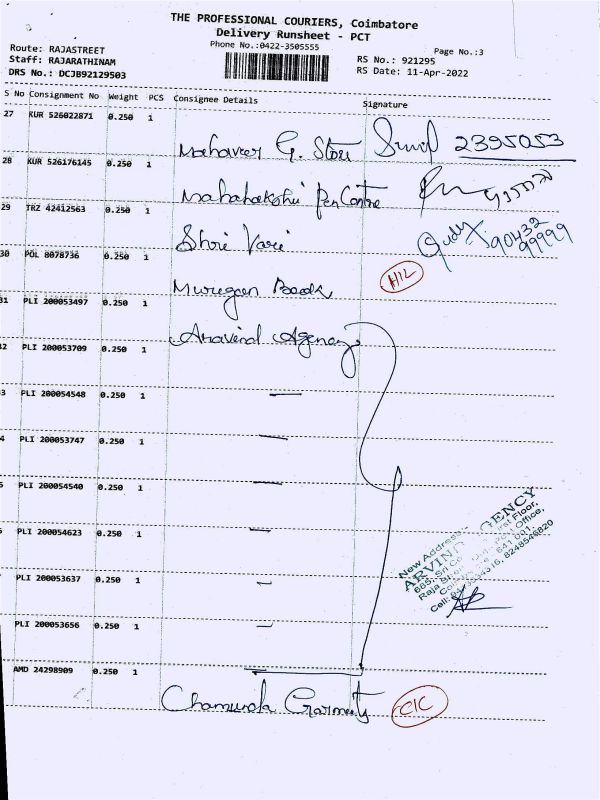 THE PROFESSIONAL COURIERS, Coimbatore
Delivery Runsheet - PCT
Phone No.:0422-3505555
Page No.:3
Route: RAJASTREET
Staff: RAJARATHINAM
DRS No.: DCJB92129503
RS No.: 921295
RS Date: 11-Apr-2022
S No Consignment No Weight PCS Consignee Details Signature
27 KUR 526022871 0.250 1
Mahaveer G. Store Sunil 2395053
28 KUR 526176145 0.250 1
Mahalakshi Pen Centre
29 TRZ 42412563 0.250 1
Shri Vari 90432 99999
30 POL 8078736 0.250 1
Murugan Book H1L
31 PLI 200053497 0.250 1
Aravind Agency
2 PLI 200053709 0.250 1
3 PLI 200054548 0.250 1
4 PLI 200053747 0.250 1
5 PLI 200054540 0.250 1
PLI 200054623 0.250 1
PLI 200053637 0.250 1
PLI 200053656 0.250 1
New Address:-
ARVIND AGENCY
665, Sri First Floor,
Raja Post Office,
641 001.
Cell: 8248546820
AMD 24298909 0.250 1
Chamunda Garments CIC